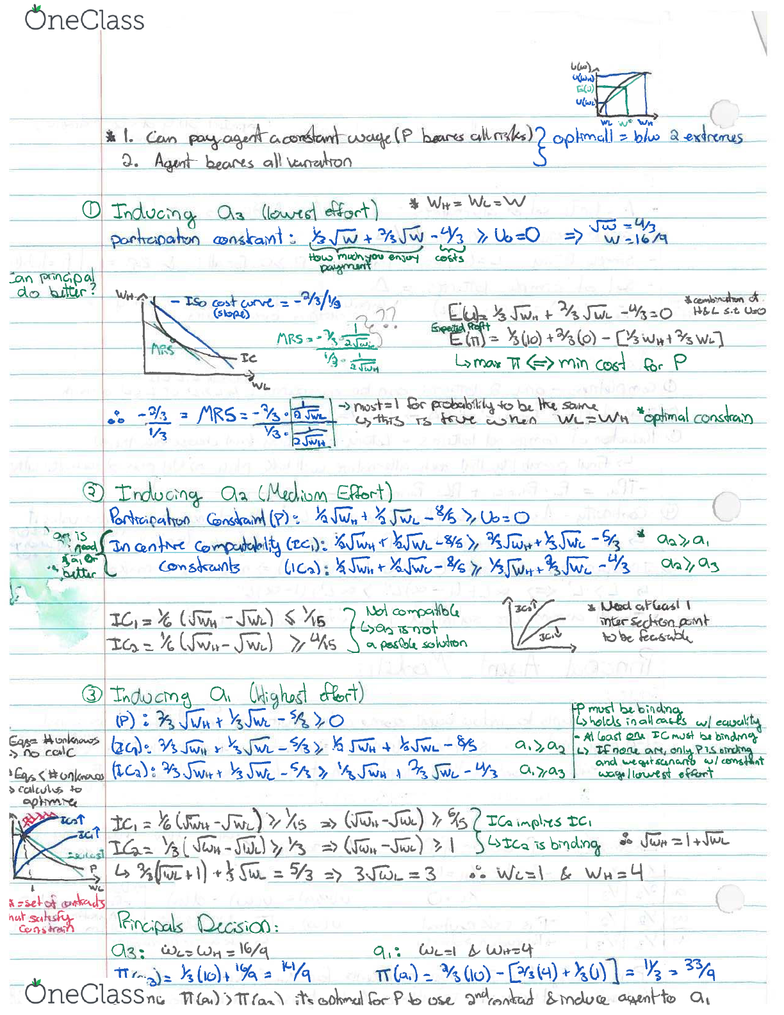 OneClass
U(w)
U(WH)
E(U)
U(WL)
WL W* WH
* 1. Can pay agent a constant wage (P beares all risks) } optimall = b/w 2 extremes
2. Agent beares all variation
① Inducing a3 (lowest effort) * WH = WL = W
participation constraint: 1/3√W + 2/3√W - 4/3 ≥ U0 = 0 ⇒ √W = 4/3
W = 16/9
How much you enjoy payment costs
Can principal do better?
WH - Iso cost curve = -2/3/1/3
(slope)
MRS = -2/3 · 1/2√WL / 1/3 · 1/2√WH ???
MRS IC
WL
E(U) = 1/3√WH + 2/3√WL - 4/3 = 0 * combination of H&L s.t U=0
Expected Profit
E(π) = 1/3(10) + 2/3(0) - [1/3WH + 2/3WL]
↳ max π ⟺ min cost for P
∴ -2/3 / 1/3 = MRS = -2/3 · 1/2√WL / 1/3 · 1/2√WH → most = 1 for probability to be the same
↳ this is true when WL = WH * optimal constrain
② Inducing a2 (Medium Effort)
Participation Constraint (P): 1/2√WH + 1/2√WL - 8/5 ≥ U0 = 0
Incentive Compatability (IC1): 1/2√WH + 1/2√WL - 8/5 ≥ 2/3√WH + 1/3√WL - 5/3 * a2 ≥ a1
constraints (IC2): 1/2√WH + 1/2√WL - 8/5 ≥ 1/3√WH + 2/3√WL - 4/3 a2 ≥ a3
better
IC1 = 1/6 (√WH - √WL) ≤ 1/15 } Not compatible
IC2 = 1/6 (√WH - √WL) ≥ 4/15 ↳ a2 is not a posible solution
IC2↑
IC1↓
* Need at least 1 intersection point to be feasable
③ Inducing a1 (Highest effort)
(P): 2/3√WH + 1/3√WL - 5/3 ≥ 0
(IC1): 2/3√WH + 1/3√WL - 5/3 ≥ 1/2√WH + 1/2√WL - 8/5 a1 ≥ a2
(IC2): 2/3√WH + 1/3√WL - 5/3 ≥ 1/3√WH + 2/3√WL - 4/3 a1 ≥ a3
P must be binding
↳ holds in all cases w/ equality
- At least one IC must be binding
↳ If none are, only P is binding
and we get scenario w/ constant
wage/lowest effort
Eqs = # unknowns
→ no calc
Eqs < # unknowns
→ calculus to
optimize
IC2↑
IC1↑
P
WL
1
= set of contracts
that satisfy
constrain
IC1 = 1/6 (√WH - √WL) ≥ 1/15 ⇒ (√WH - √WL) ≥ 6/15 } IC2 implies IC1
IC2 = 1/3 (√WH - √WL) ≥ 1/3 ⇒ (√WH - √WL) ≥ 1 ↳ IC2 is binding ∴ √WH = 1 + √WL
↳ 2/3(√WL + 1) + 1/3√WL = 5/3 ⇒ 3√WL = 3 ∴ WL = 1 & WH = 4
Principals Decision:
a3: WL = WH = 16/9 a1: WL = 1 & WH = 4
= 1/3(10) + 16/9 = 14/9 π(a1) = 2/3(10) - [2/3(4) + 1/3(1)] = 11/3 = 33/9
OneClass
π(a1) > π(a2) it's optimal for P to use 2nd contract & induce agent to a1